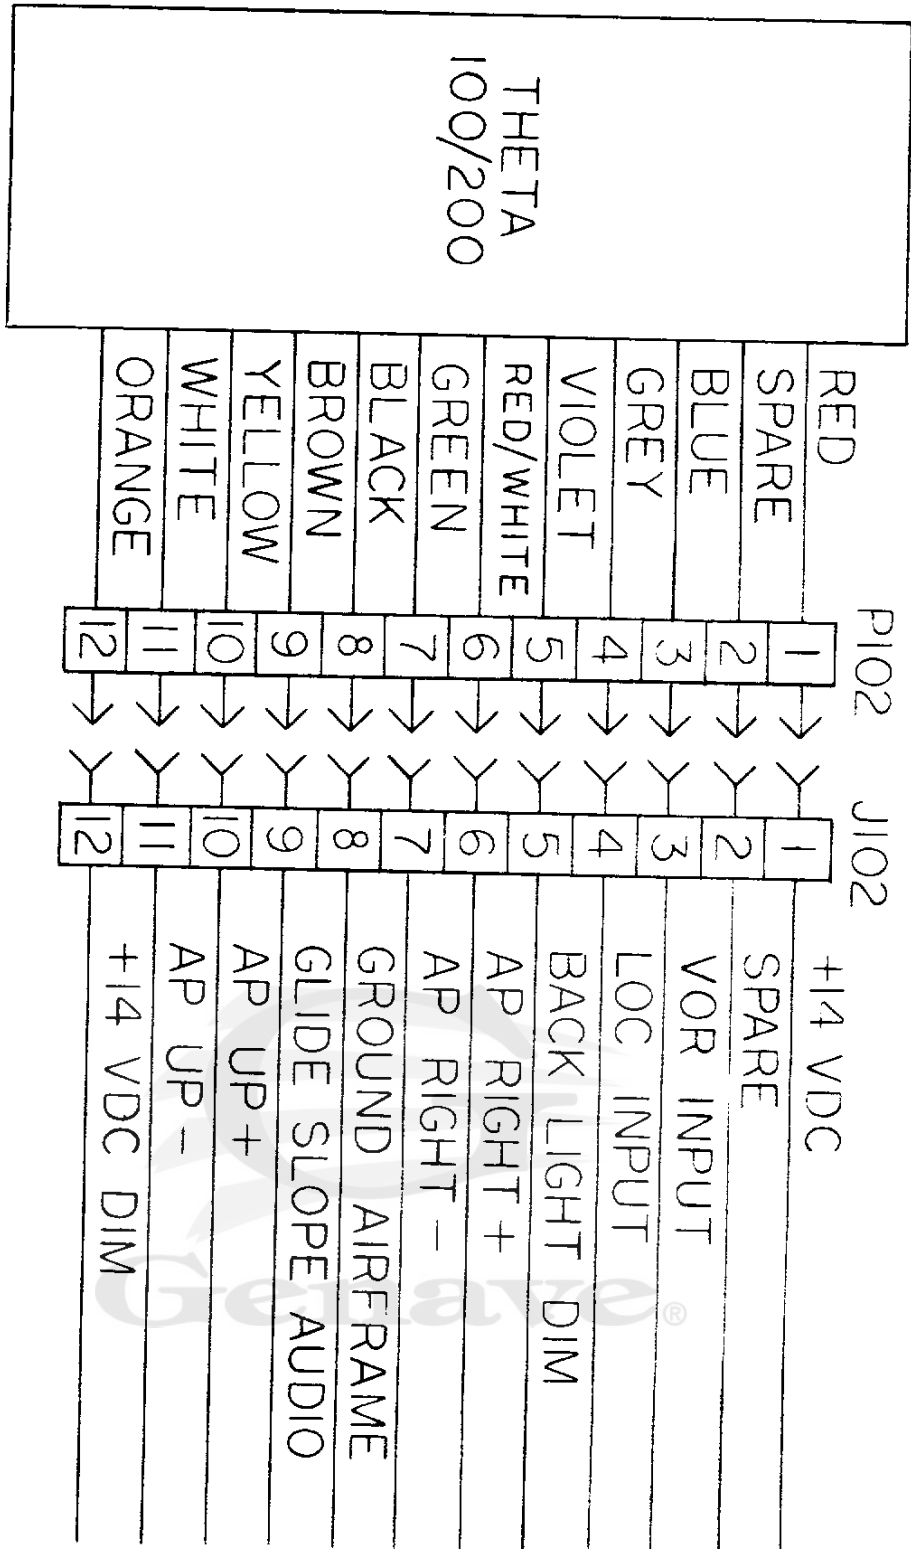 THETA
100/200
P102
J102
RED 1 1 +14 VDC
SPARE 2 2 SPARE
BLUE 3 3 VOR INPUT
GREY 4 4 LOC INPUT
VIOLET 5 5 BACK LIGHT DIM
RED/WHITE 6 6 AP RIGHT +
GREEN 7 7 AP RIGHT -
BLACK 8 8 GROUND AIRFRAME
BROWN 9 9 GLIDE SLOPE AUDIO
YELLOW 10 10 AP UP+
WHITE 11 11 AP UP-
ORANGE 12 12 +14 VDC DIM
Genave®